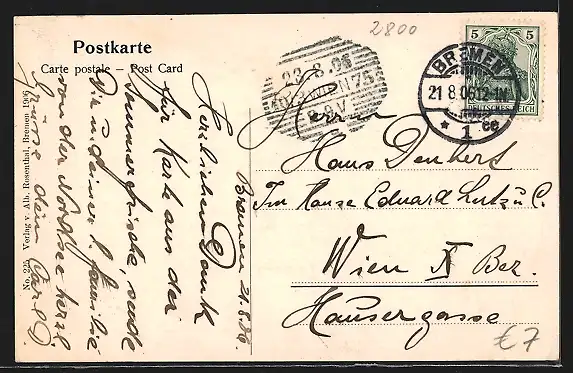 2800
Postkarte
Carte postale – Post Card
5 5
DEUTSCHES REICH
BREMEN
21 8 06 12-1N
* 1 ce
23.8.06
WIEN 76
8.V
Herrn
Hans Denkert
Im Hause Eduard Lutz u. C.
Wien X Bez.
Hausergasse
€7
Bremen 21.8.06
Herzlichen Dank
für Karte aus der
Sommerfrische, sende
Dir u. deiner l. Familie
von der Nordsee herzl
Grüsse dein Carl.
No. 225 Verlag v. Alb. Rosenthal, Bremen 1906